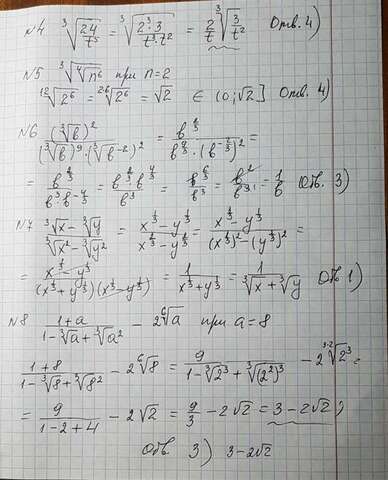 №4 ∛(24/t⁵) = ∛(2³·3/(t³·t²)) = 2/t ∛(3/t²) Отв. 4)
№5 ∛(∜n⁶) при n=2
¹²√2⁶ = ²·⁶√2⁶ = √2 ∈ (0;√2] Отв. 4)
№6 (∛b)²/((∛b)⁹·(∛b⁻²)²) = b^(2/3)/(b^(9/3)·(b^(-2/3))²) =
= b^(2/3)/(b³·b^(-4/3)) = b^(2/3)·b^(4/3)/b³ = b^(6/3)/b³ = b²/b³ = 1/b Отв. 3)
№7 (∛x - ∛y)/(∛x² - ∛y²) = (x^(1/3) - y^(1/3))/(x^(2/3) - y^(2/3)) = (x^(1/3) - y^(1/3))/((x^(1/3))² - (y^(1/3))²) =
= (x^(1/3) - y^(1/3))/((x^(1/3) + y^(1/3))(x^(1/3) - y^(1/3))) = 1/(x^(1/3) + y^(1/3)) = 1/(∛x + ∛y) Отв 1)
№8 (1+a)/(1-∛a+∛a²) - 2⁶√a при a=8
(1+8)/(1-∛8+∛8²) - 2⁶√8 = 9/(1-∛2³+∛(2²)³) - 2 ³·²√2³ =
= 9/(1-2+4) - 2√2 = 9/3 - 2√2 = 3-2√2;
Отв 3) 3-2√2